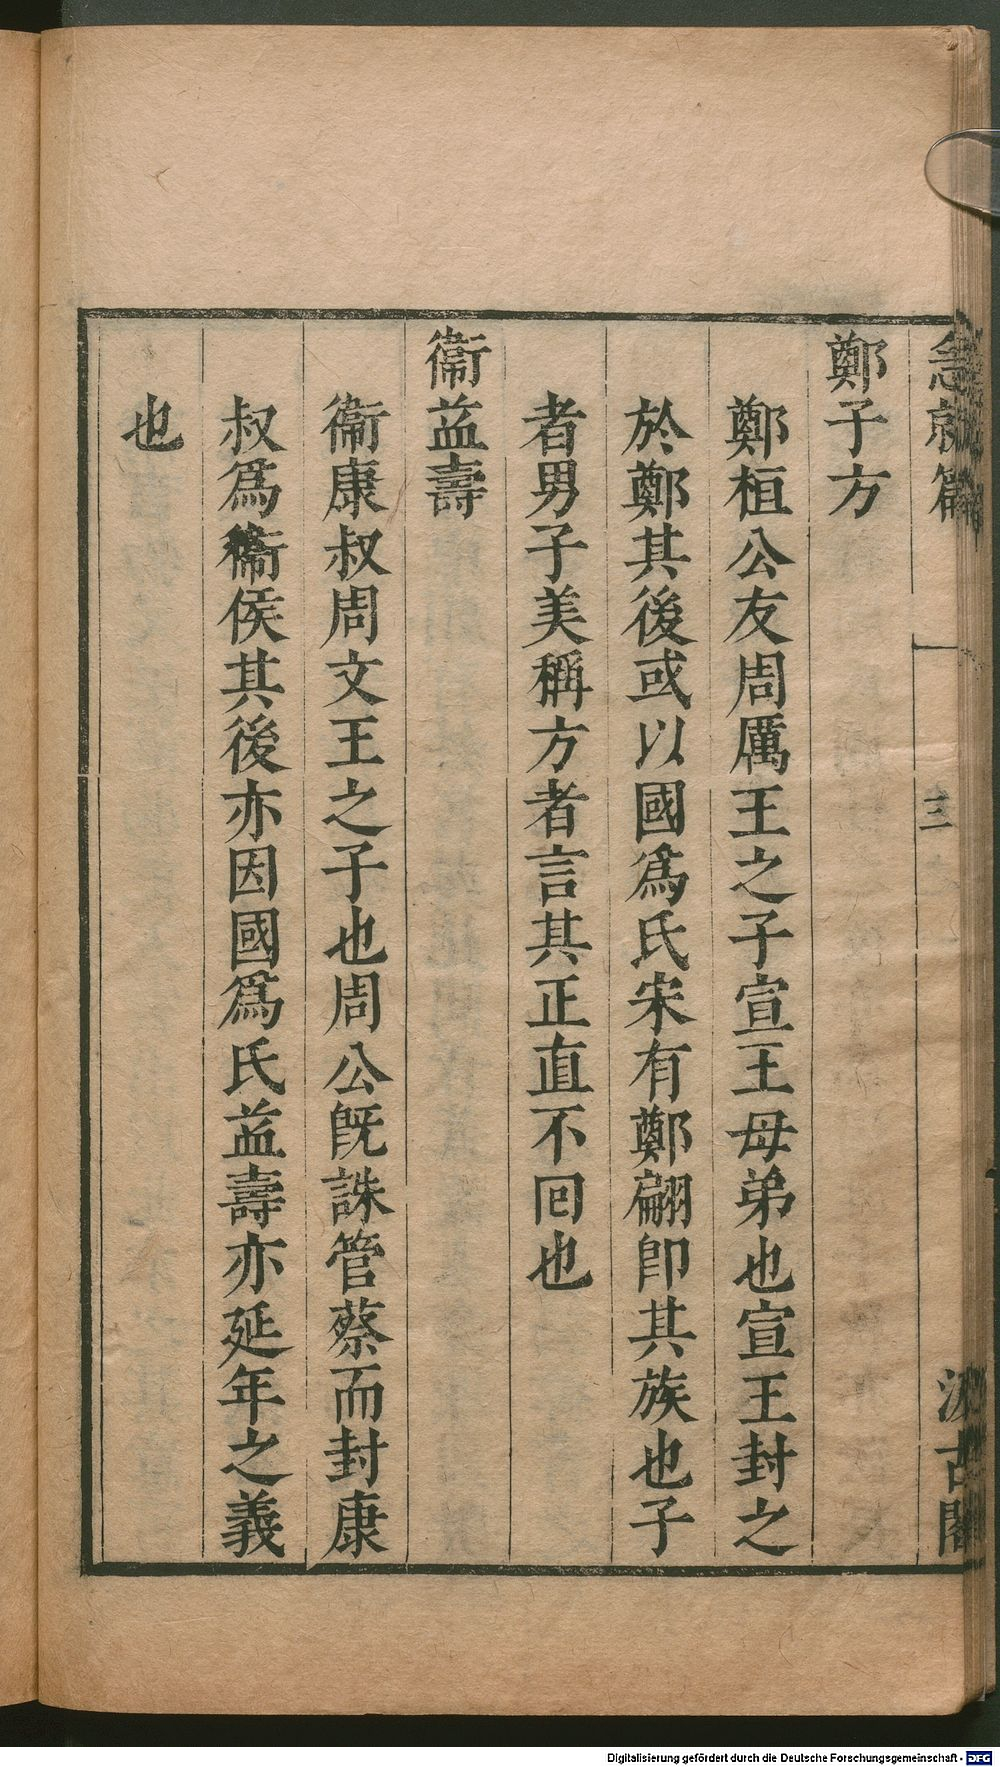 急就篇 一 三 汲古閣
鄭子方
鄭桓公友周厲王之子宣王母弟也宣王封之
於鄭其後或以國爲氏宋有鄭翩卽其族也子
者男子美稱方者言其正直不回也
衞益壽
衞康叔周文王之子也周公旣誅管蔡而封康
叔爲衞侯其後亦因國爲氏益壽亦延年之義
也
Digitalisierung gefördert durch die Deutsche Forschungsgemeinschaft - DFG